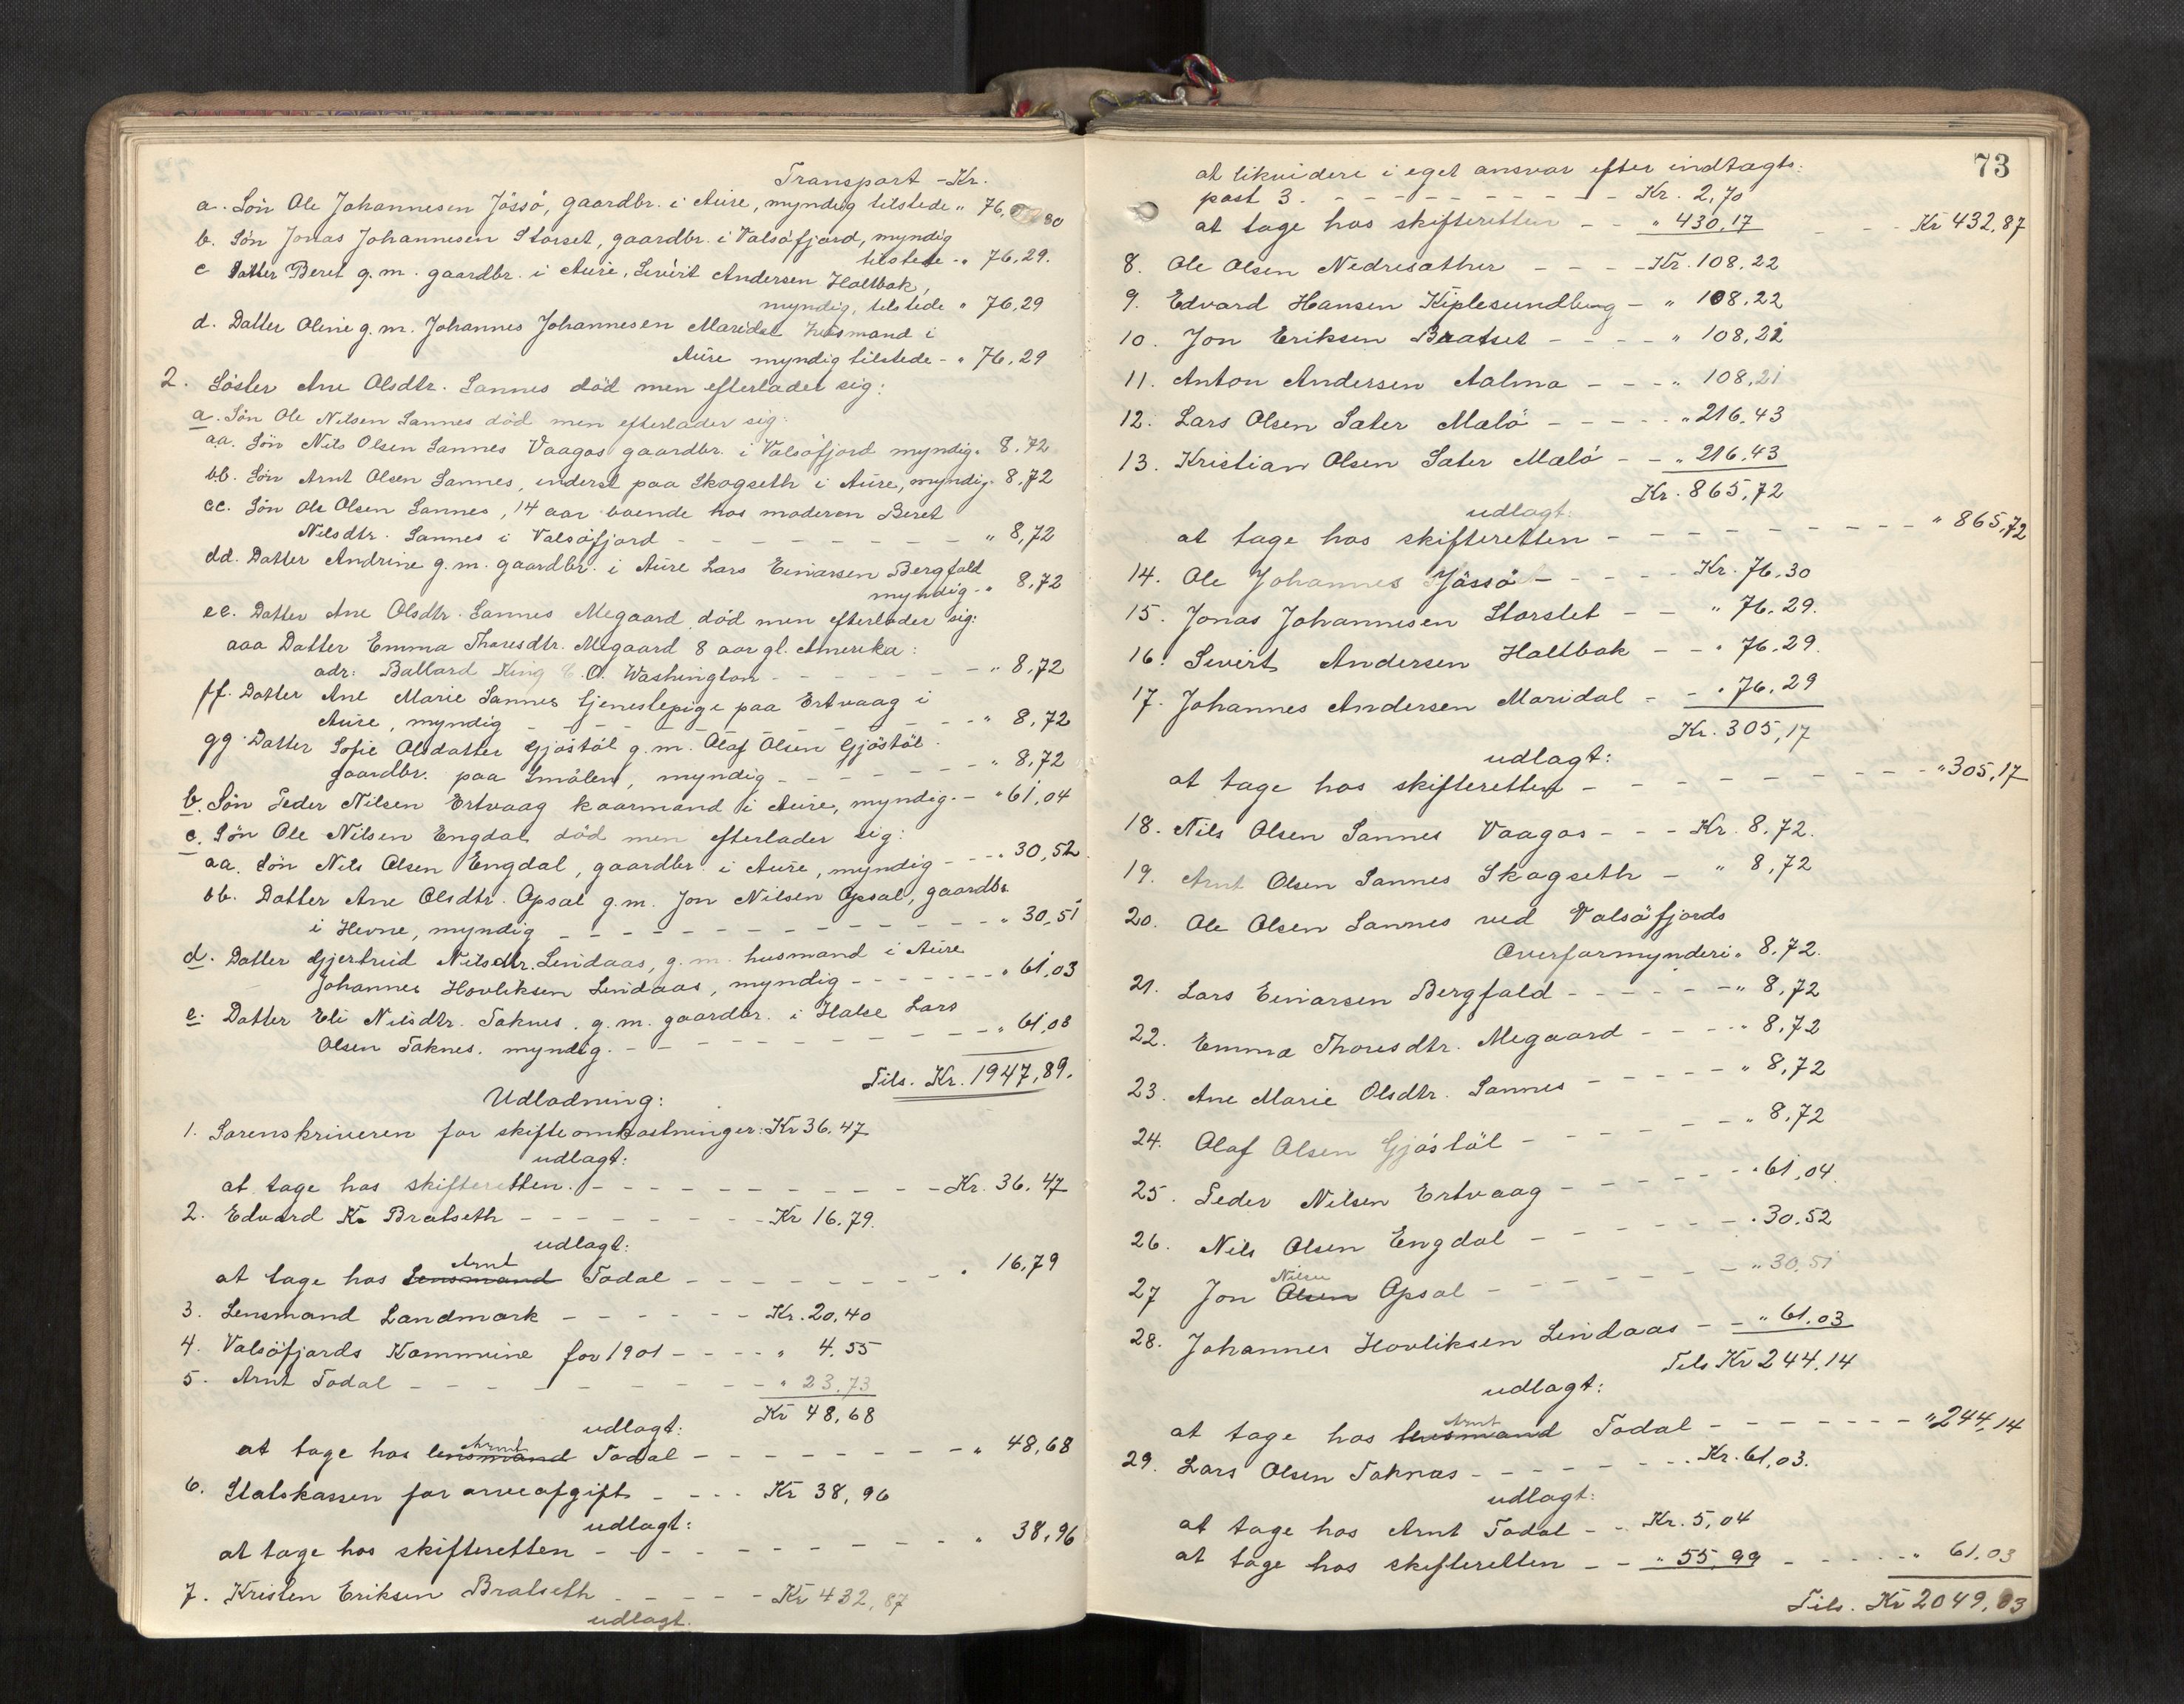 Transport - Kr.
a. Søn Ole Johannesen Jössö, gaardbr. i Aure, myndig tilstede " 76, 30
b. Søn Jonas Johannesen Storset, gaardbr. i Valsöfjord, myndig
tilstede - " 76,29.
c Datter Beret g.m. gaardbr. i Aure, Sivert Andersen Holtbak,
myndig, tilstede " 76,29
d. Datter Oline g.m. Johannes Johannesen Maridal husmand i
Aure myndig tilstede - " 76,29
2. Söster Ane Olsdtr. Sannes död men efterlader sig:
a. Sön Ole Nilsen Sannes död men efterlader sig:
aa. Sön Nils Olsen Sannes Vaagos gaardbr. i Valsöfjord myndig " 8,72
bb. Sön Arnt Olsen Sannes, inderst paa Skogseth i Aure, myndig " 8,72
cc. Sön Ole Olsen Sannes, 14 aar boende hos moderen Beret
Nilsdtr. Sannes i Valsöfjord - - - - - - - - " 8,72
dd. Datter Andrine g.m. gaardbr. i Aure Lars Einarsen Bergfald
myndig - " 8,72
ee. Datter Ane Olsdtr. Sannes Megaard död men efterlader sig:
aaa Datter Emma Thoresdtr. Megaard 8 aar gl. Amerika:
adr: Ballard King C. O. Washington - - - - - - - " 8,72
ff. Datter Ane Marie Sannes tjenestepige paa Ertvaag i
Aure, myndig - - - - - - - - - - " 8,72
gg. Datter Sofie Olsdatter Gjöstöl g.m. Olaf Olsen Gjöstöl
gaardbr. paa Smölen, myndig - - - - - - " 8,72
b. Sön Peder Nilsen Ertvaag kaarmand i Aure, myndig. - " 61,04
c. Sön Ole Nilsen Engdal död men efterlader sig:
aa. Sön Nils Olsen Engdal, gaardbr. i Aure, myndig - - - " 30,52
bb. Datter Ane Olsdtr. Opsal g.m. Jon Nilsen Opsal, gaardbr
i Hevne, myndig - - - - - - - - - - - " 30,51
d. Datter Gjertrud Nilsdtr. Lindaas, g.m. husmand i Aure
Johannes Hovliksen Lindaas, myndig - - - - - - " 61,03
e. Datter Eli Nilsdtr. Taknes. g.m. gaardbr. i Halse Lars
Olsen Taknes. myndig. - - - - - - - - - " 61,03
Tils. Kr. 1947,89.
Udlodning:
1. Sorenskriveren for skifteomkostninger: Kr 36.47
udlagt:
at tage hos skifteretten. - - - - - - - - - - Kr. 36,47
2. Edvard K. Bratseth - - - - - - - Kr 16.79.
udlagt:
Arnt
at tage hos Lensmand Todal - - - - - - - - " 16,79
3. Lensmand Landmark - - - - - - Kr. 20,40
4. Valsöfjords Kommune for 1901 - - - - " 4.55
5. Arnt Todal - - - - - - - - - - " 23.73
Kr 48,68
udlagt:
Arnt
at tage hos lensmand Todal - - - - - - - - " 48,68
6. Statskassen for arveafgift - - - - Kr 38,96
udlagt:
at tage hos skifteretten - - - - - - - - - " 38,96
7. Kristen Eriksen Bratseth - - - - - Kr 432,87
udlagt.
73
at likvidere i eget ansvar efter indtægts:
post 3. - - - - - - - - - - - Kr. 2,70
at tage hos skifteretten - - " 430,17 - - - Kr 432,87
8. Ole Olsen Nedresæther - - - - Kr. 108,22
9. Edvard Hansen Kiplesundbug - " 108,22
10. Jon Eriksen Bratset - - - - " 108,21
11. Anton Andersen Aalmo - - - " 108,21
12. Lars Olsen Sæter Mælö - - - - " 216,43
13. Kristian Olsen Sæter Mælö - - " 216,43
Kr. 865,72
udlagt:
at tage hos skifteretten - - - - - - - - - - " 865,72
14. Ole Johannes Jössö - - - - - Kr. 76,30
15. Jonas Johannesen Storslet - - " 76,29.
16. Sivert Andersen Holtbak - - " 76,29.
17. Johannes Andersen Maridal - - " 76,29
Kr. 305,17
udlagt:
at tage hos skifteretten - - - - - - - - - " 305,17
18. Nils Olsen Sannes Vaagos - - - Kr. 8,72.
19. Arnt Olsen Sannes Skogseth - " 8,72
20. Ole Olsen Sannes ved Valsöfjords
Overformynderi " 8,72.
21. Lars Einarsen Bergfald - - - - - - " 8,72
22. Emma Thoresdtr. Megaard - - - - " 8,72
23. Ane Marie Olsdtr. Sannes - - - - - " 8,72
24. Olaf Olsen Gjöstöl - - - - - - " 8,72
25. Peder Nilsen Ertvaag - - - - - - " 61,04.
26. Nils Olsen Engdal - - - - - - " 30,52
Nilsen
27 Jon Olsen Opsal - - - - - - - " 30,51
28. Johannes Hovliksen Lindaas - - " 61,03
Tils Kr 244,14
udlagt:
Arnt
at tage hos lensmand Todal - - - - - - - " 244,14
29. Lars Olsen Taknæs - - - - - - - Kr. 61,03.
udlagt:
at tage hos Arnt Todal - - Kr. 5,04
at tage hos skifteretten - - " 55,99 - - - - - " 61,03
Tils. Kr 2049,03